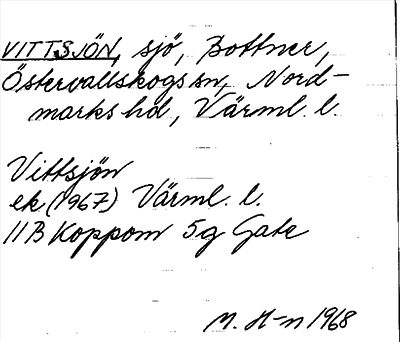 VITTSJÖN, sjö, Bottner,
Östervallskogs sn, Nord-
marks hd, Värml. l.
Vittsjön
ek (1967) Värml. l.
11B Koppom 5g Gate
M. H-n 1968